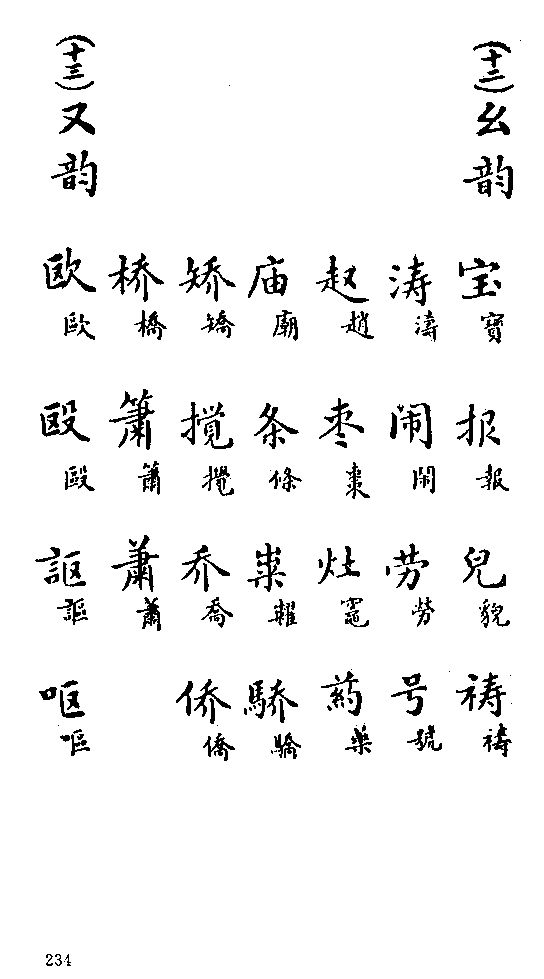 （十二）幺韵
宝寶 报報 皃貌 祷禱
涛濤 闹鬧 劳勞 号號
赵趙 枣棗 灶竈 药藥
庙廟 条條 粜糶 骄驕
矫矯 搅攪 乔喬 侨僑
桥橋 箫簫 萧蕭
（十三）又韵
欧歐 殴毆 讴謳 呕嘔
234